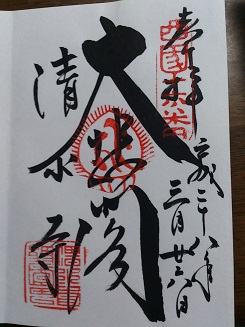 奉拝
平成二十八年
三月廿六日
大悲閣
清水寺